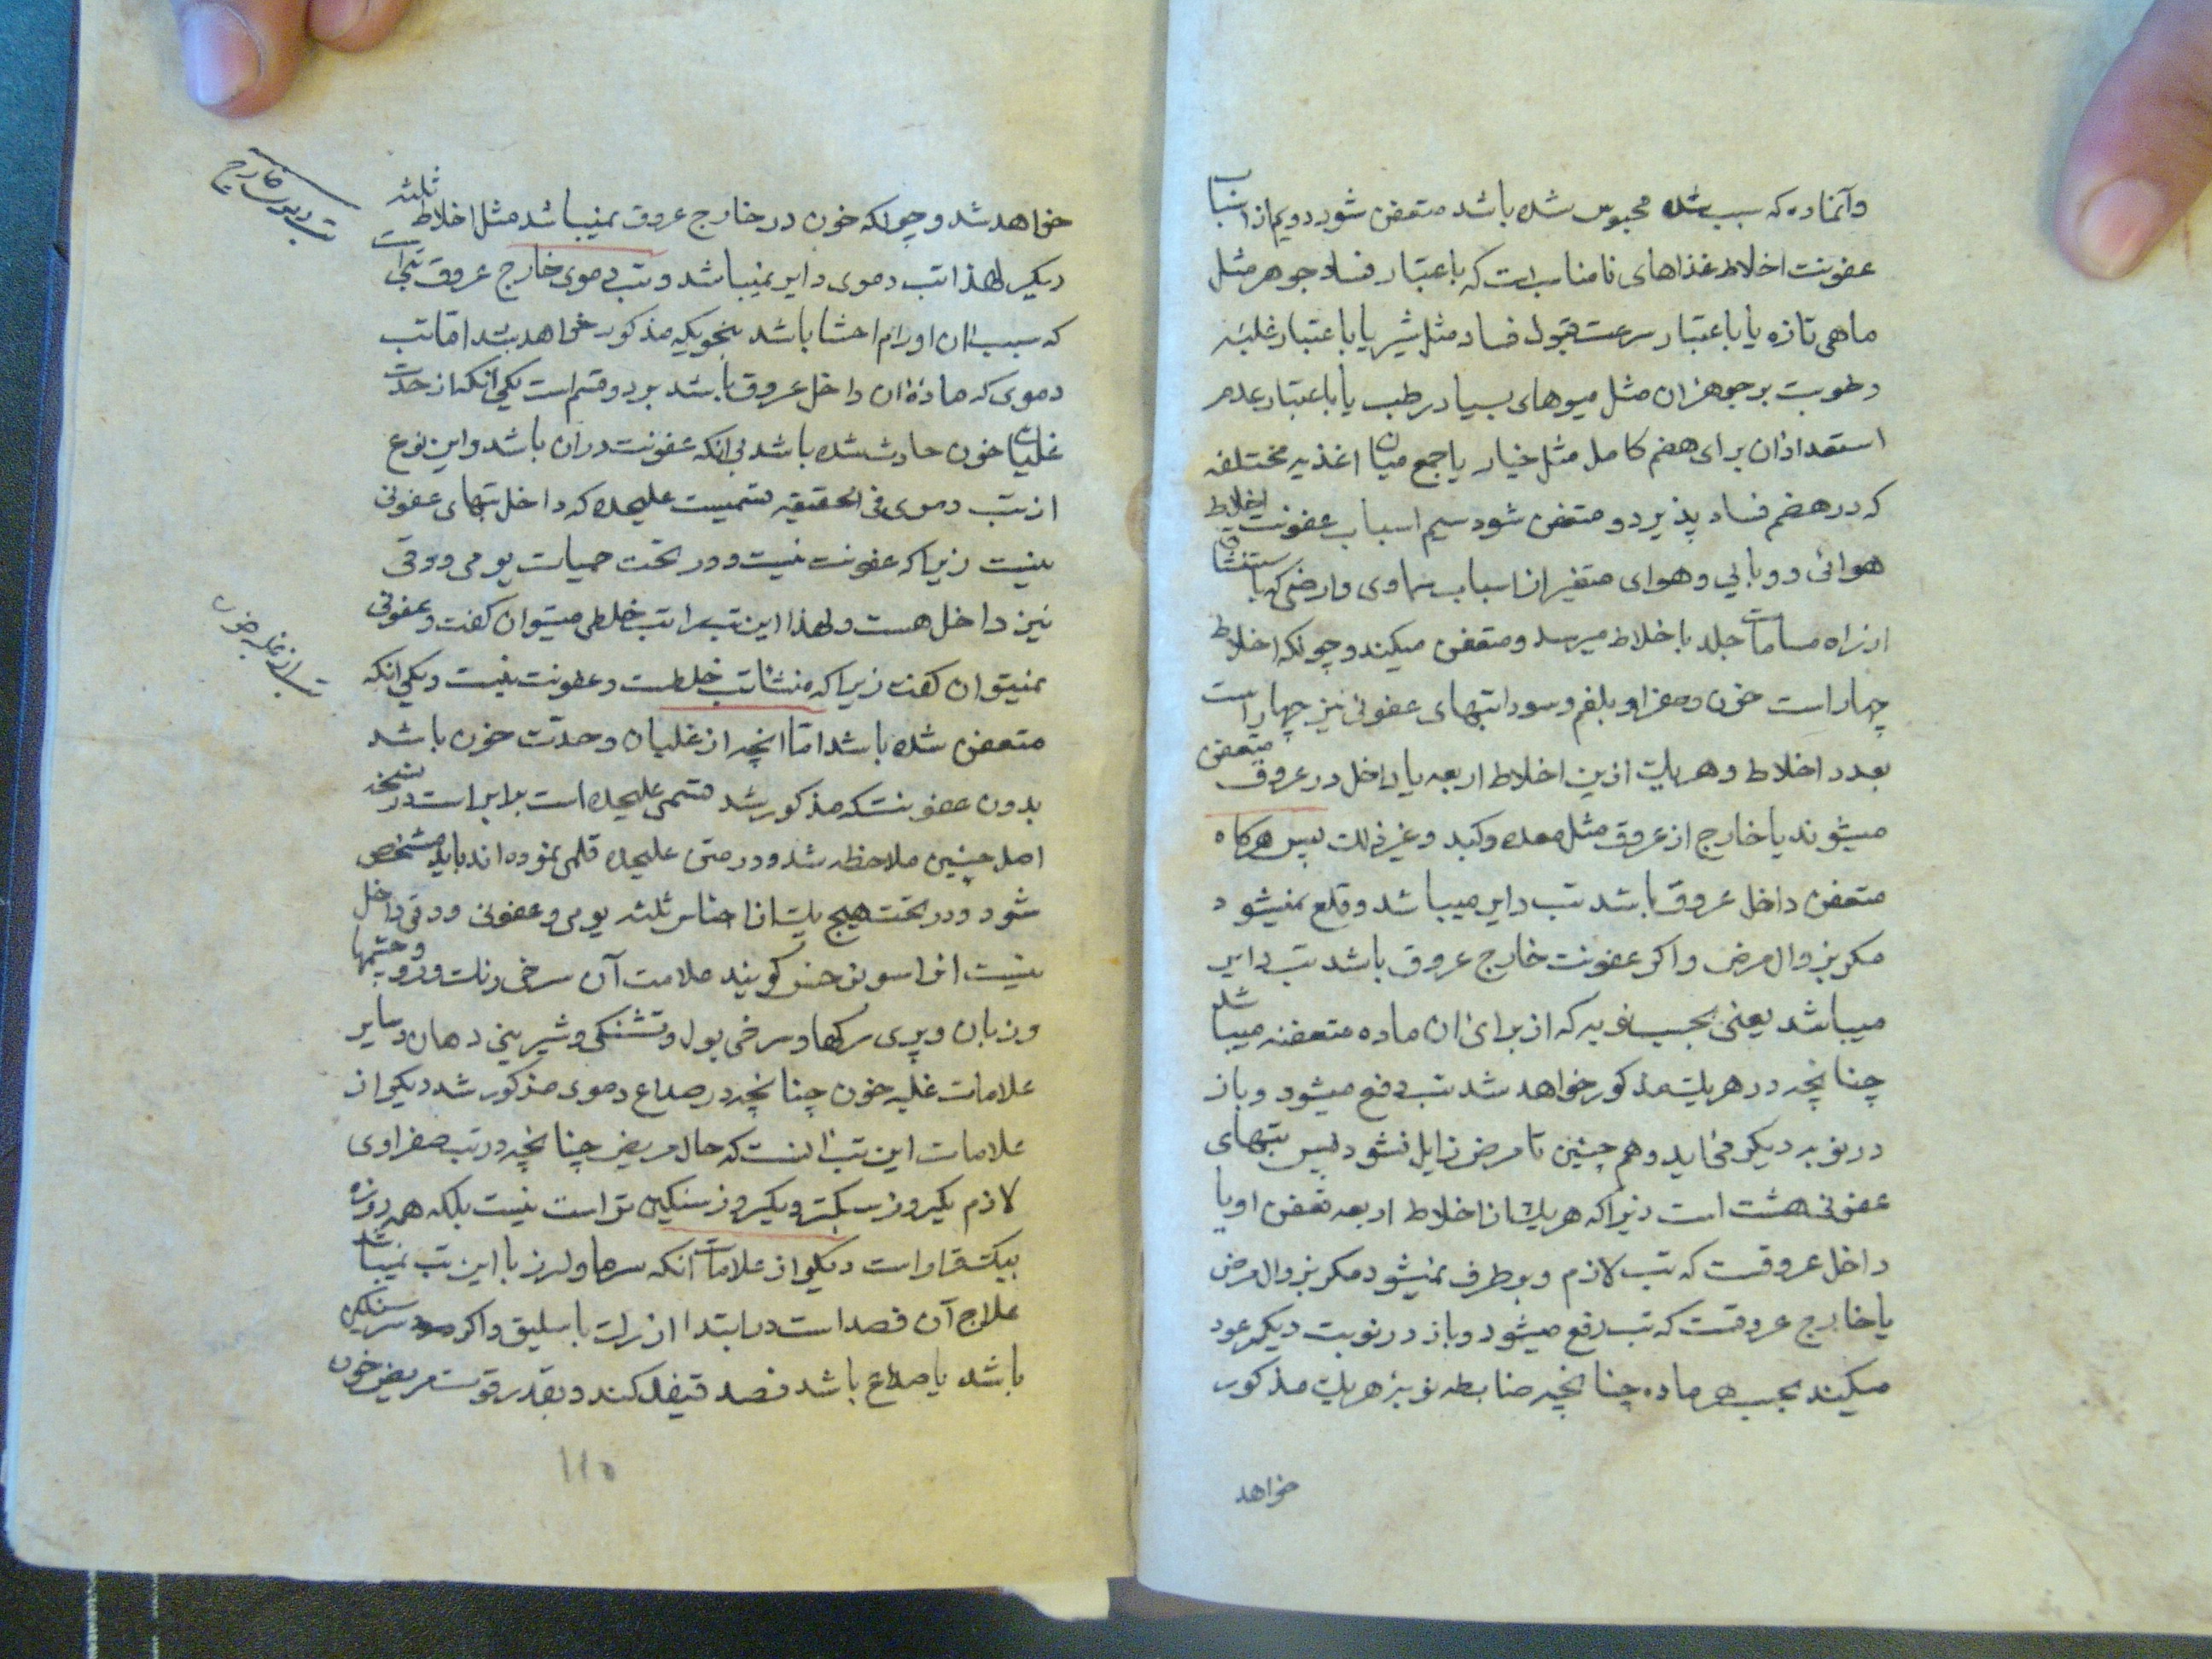 وآنماده که سبب سده محبوس شده باشد متعفن شود دویم از اسباب
عفونت اخلاط غذاهای نامناسب است که باعتبار فساد جوهر مثل
ماهی تازه یا باعتبار سرعت قبول فساد مثل شیر یا باعتبار غلبه
رطوبت بر جوهر ان مثل میوهای بسیار رطب یا باعتبار عدم
استعداد ان برای هضم کامل مثل خیار یا جمع میان اغذیه مختلفه
که در هضم فساد پذیرد و متعفن شود سیم اسباب عفونت اخلاط
هوائی و وبائی و هوای متغیر از اسباب سماوی وارضی که باستنشاق
از راه مسامات جلد باخلاط میرسد ومتعفن میکند وچونکه اخلاط
چهار است خون وصفرا وبلغم وسودا تبهای عفونی نیز چهار است
بعدد اخلاط وهریک ازین اخلاط اربعه یا داخل در عروق متعفن
میشوند یا خارج از عروق مثل معده وکبد وغیر ذلک پس هرکاه
متعفن داخل عروق باشد تب دایر میباشد وقلع نمیشود
مکر بزوال مرض واکر عفونت خارج عروق باشد تب دایر
میباشد یعنی بحسب نوبه که از برای ان ماده متعفنه میباشد
چنانچه در هریک مذکور خواهد شد تب دفع میشود وباز
در نوبه دیکر می اید وهم چنین تا مرض زایل نشود پس تبهای
عفونی هشت است زیرا که هریک از اخلاط اربعه تعفن او یا
داخل عروقست که تب لازم وبرطرف نمیشود مکر بزوال مرض
یا خارج عروقست که تب رفع میشود وباز در نوبت دیکر عود
میکند بحسب هر ماده چنانچه ضابطه نوبه هریک مذکور
خواهد
خواهد شد وچونکه خون در خارج عروق نمیباشد مثل اخلاط ثلثه
دیکر لهذا تب دموی دایر نمیباشد وتب دموی خارج عروق تبی است
که سبب ان اورام احشا باشد بنحویکه مذکور خواهد شد اما تب
دموی که ماده ان داخل عروق باشد بر دو قسم است یکی آنکه از حدت
غلیان خون حادث شده باشد بی انکه عفونت در ان باشد واین نوع
از تب دموی فی الحقیقه قسمیست علیحده که داخل تبهای عفونی
نیست زیرا که عفونت نیست ودر تحت حمیات یومی ودقی
نیز داخل هست ولهذا این تب را تب خلطی میتوان کفت وعفونی
نمیتوان کفت زیرا که منشا تب خلطست وعفونت نیست ویکی انکه
متعفن شده باشد اما انچه از غلیان وحدت خون باشد
بدون عفونت که مذکور شد قسمی علیحده است برابر است در نسخه
اصل چنین ملاحظه شد ودر متن علیحده قلمی نموده اند باید مشخص
شود ودر تحت هیچ یک از اجناس ثلثه یومی وعفونی ودقی داخل
نیست انرا سونوخس کویند علامت آن سرخی رنک ورو وچشمها
وزبان وپری رکها وسرخی بول وتشنکی وشیرینی دهان وسایر
علامات غلبه خون چنانچه در صداع دموی مذکور شد دیکر از
علامات این تب انست که حال مریض چنانچه در تب صفراوی
لازم یکروز سبکتر ویکروز سنکین تر است نیست بلکه همه روزه
بیکقرار است دیکر از علامات آنکه سرما ولرز با این تب نمیباشد
علاج آن فصد است در ابتدا از رک باسلیق واکر سر سنکین
باشد یا صداع باشد فصد قیفال کند وبقدر قوت مریض خون
تب دموی خارج
تب از غلیان خون
۱۱۵